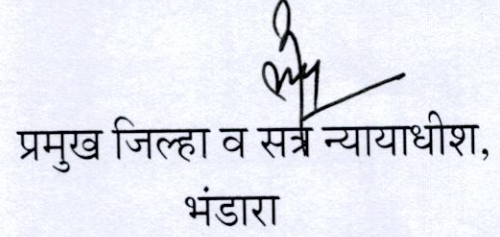 प्रमुख जिल्हा व सत्र न्यायाधीश,
भंडारा